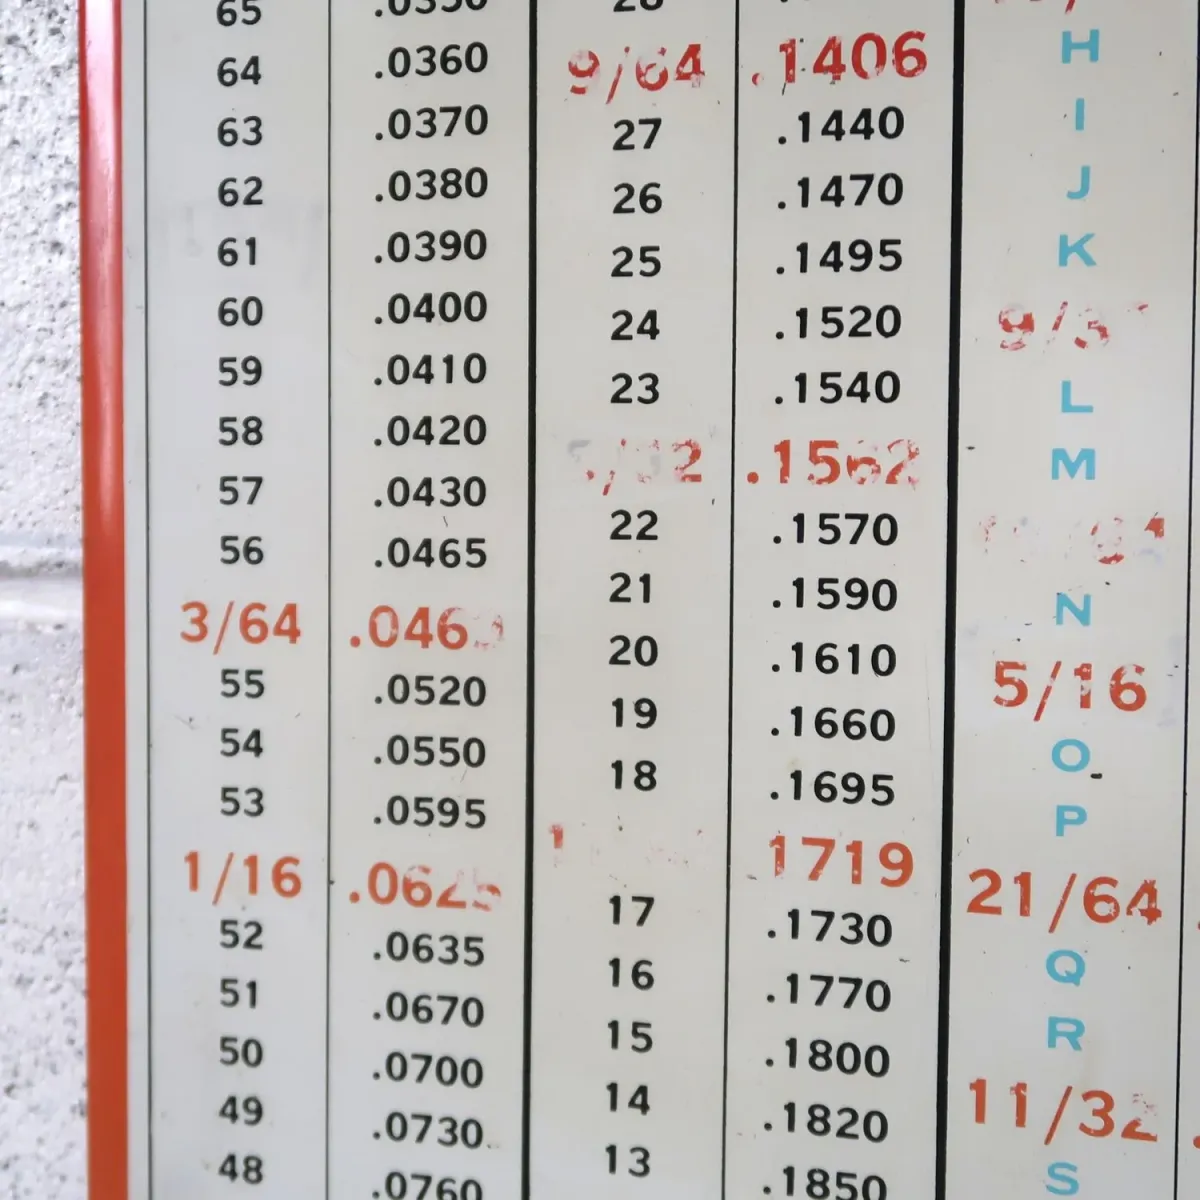 65
64 .0360
63 .0370
62 .0380
61 .0390
60 .0400
59 .0410
58 .0420
57 .0430
56 .0465
3/64
55 .0520
54 .0550
53 .0595
1/16 .0625
52 .0635
51 .0670
50 .0700
49 .0730
48 .0760
9/64 .1406
27 .1440
26 .1470
25 .1495
24 .1520
23 .1540
.1562
22 .1570
21 .1590
20 .1610
19 .1660
18 .1695
1719
17 .1730
16 .1770
15 .1800
14 .1820
13 .1850
H
I
J
K
L
M
N
5/16
O
P
21/64
Q
R
11/32
S